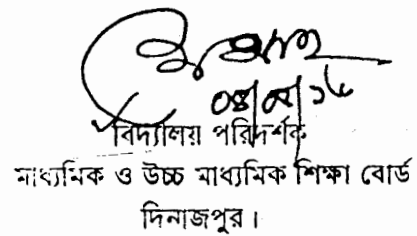 বিদ্যালয় পরিদর্শক
মাধ্যমিক ও উচ্চ মাধ্যমিক শিক্ষা বোর্ড
দিনাজপুর।